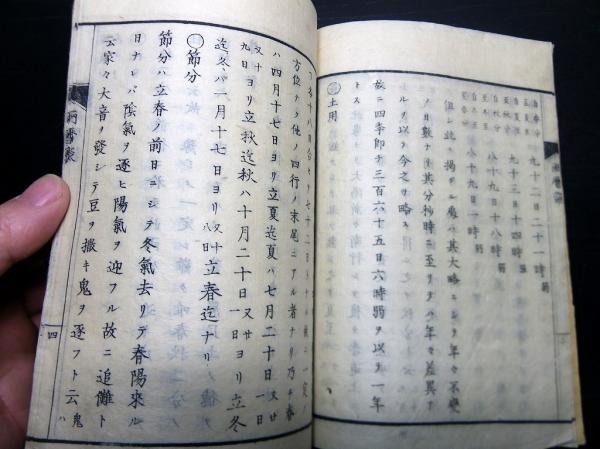 九十二日二十一時弱
九十三日十四時弱
八十九日十八時弱
八十九日一時弱
但シ此ニ掲グル處ハ其大略ニシテ年々不變
ノ日數ナリ其分秒時ニ至リテハ年々差異ア
ルヲ以テ今之ヲ略ス
故ニ四季即チ三百六十五日六時弱ヲ以テ一年
土用
方位ナク他ノ四行ノ末尾ニアル者ナリ乃チ春
ハ四月十七日ヨリ立夏迄夏ハ七月二十日又廿一日
又十九日ヨリ立秋迄秋ハ十月二十日又廿一日ヨリ立冬
迄冬ハ一月十七日ヨリ又十八日立春迄ナリ
節分
節分ハ立春ノ前日ニシテ冬氣去リテ春陽來ル
日ナレバ陰氣ヲ逐ヒ陽氣ヲ迎フル故ニ追儺ト
云家々大音ヲ發シテ豆ヲ撒キ鬼ヲ逐フト云鬼ハ
四